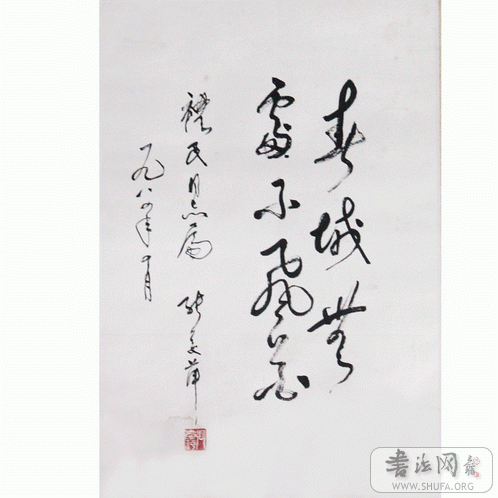 春城無
處不飛花
禮民同志屬
一九八四年十月
书法网
WWW.SHUFA.ORG